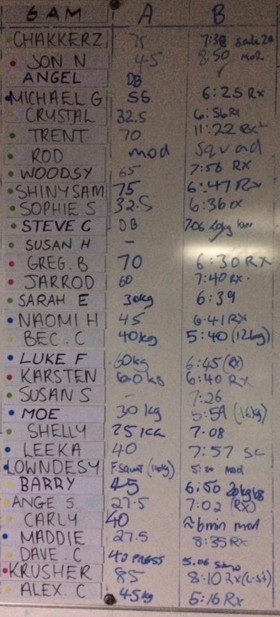 6 AM A B
CHAKKERZ 75 7:38
JON N 45 8:50
ANGEL DB
MICHAEL G 55 6:25 RX
CRYSTAL 32.5 6:56 RX
TRENT 70 11:22
ROD mod Squad
WOODSY 65 7:56 RX
SHINYSAM 75 6:47 RX
SOPHIE S 32.5 6:36 rx
STEVE C DB
SUSAN H -
GREG. B 70 6:30 RX
JARROD 60 7:40 RX
SARAH E 30kg 6:39
NAOMI H 45 6:41 RX
BEC. C 40kg 5:40 (12kg)
LUKE F 60kg 6:45 (RX)
KARSTEN 60kg 6:40 RX
SUSAN S - 7:26
MOE 30 kg 5:59 (16kg)
SHELLY 25 KG 7-08
LEEKA 40 7:57 SC
LOWNDESY F Squat mod
BARRY 45 6:50 20kg
ANGE S 27.5 7:02 (RX)
CARLY 40 6min mod
MADDIE 27.5 8:35 RX
DAVE C 40 PRESS 5.06
KRUSHER 85 8:10 RX
ALEX. C 45kg 5:16 RX